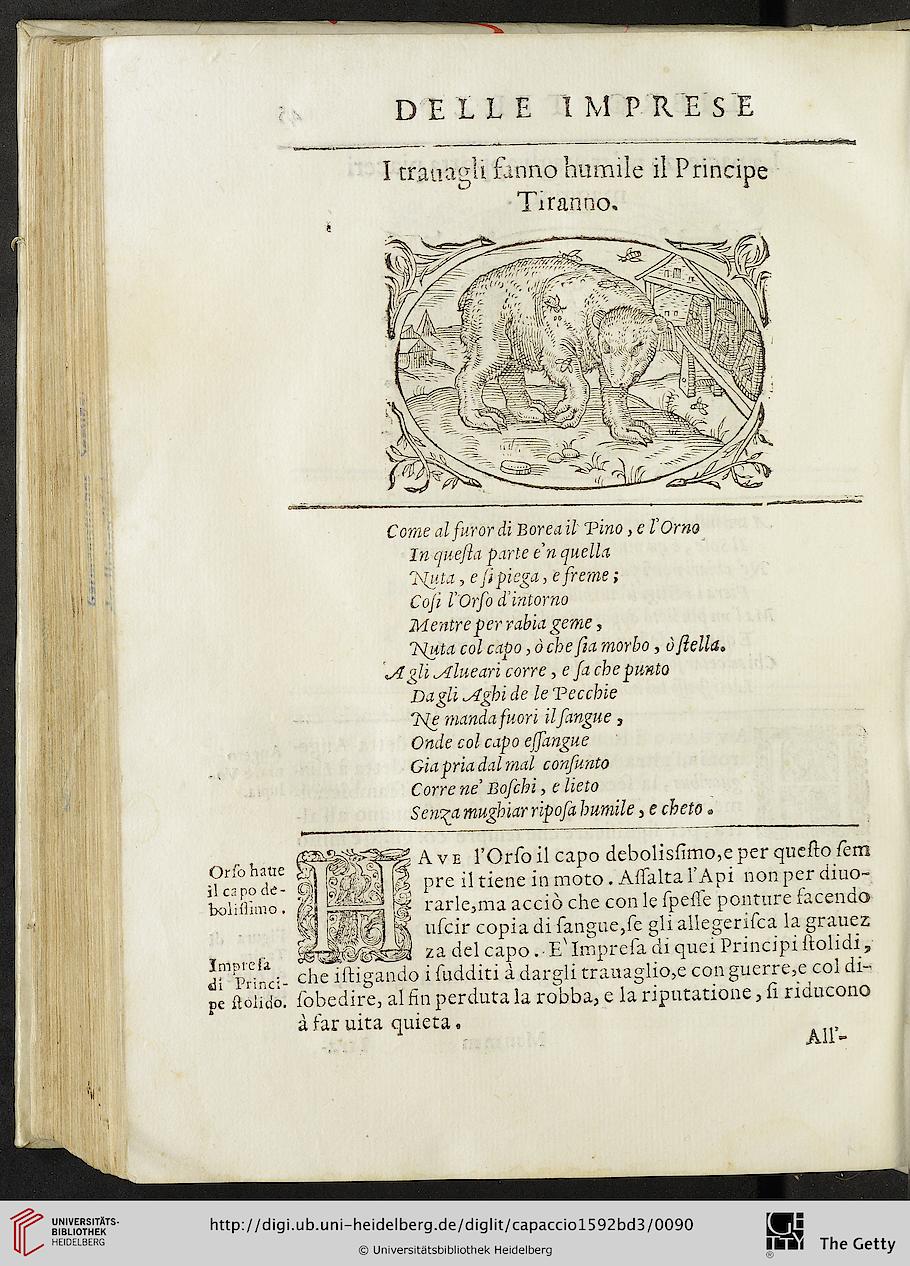 DELLE IMPRESE
I trauagli fanno humile il Principe
Tiranno.
Come al furor di Borea il Pino, e l'Orno
In queſta parte e'n quella
Nuta, e ſi piega, e freme;
Coſi l'Orſo d'intorno
Mentre per rabia geme,
Nuta col capo, ò che ſia morbo, ò ſtella.
A gli Alueari corre, e fa che punto
Da gli Aghi de le Pecchie
Ne manda fuori il ſangue,
Onde col capo eſſangue
Gia pria dal mal conſunto
Corre ne' Boſchi, e lieto
Senza mughiar ripoſa humile, e cheto.
Orſo haue
il capo de-
boliſſimo.
Impreſa
di Princi-
pe ſtolido.
HAVE l'Orſo il capo deboliſſimo, e per queſto ſem
pre il tiene in moto. Aſſalta l'Api non per diuo-
rarle, ma acciò che con le ſpeſſe ponture facendo
uſcir copia di ſangue, ſe gli allegeriſca la grauez
za del capo. E' Impreſa di quei Principi ſtolidi,
che iſtigando i ſudditi à dargli trauaglio, e con guerre, e col di-
ſobedire, al fin perduta la robba, e la riputatione, ſi riducono
à far uita quieta.
All'-
UNIVERSITÄTS-
BIBLIOTHEK
HEIDELBERG
http://digi.ub.uni-heidelberg.de/diglit/capaccio1592bd3/0090
© Universitätsbibliothek Heidelberg
GETTY
The Getty